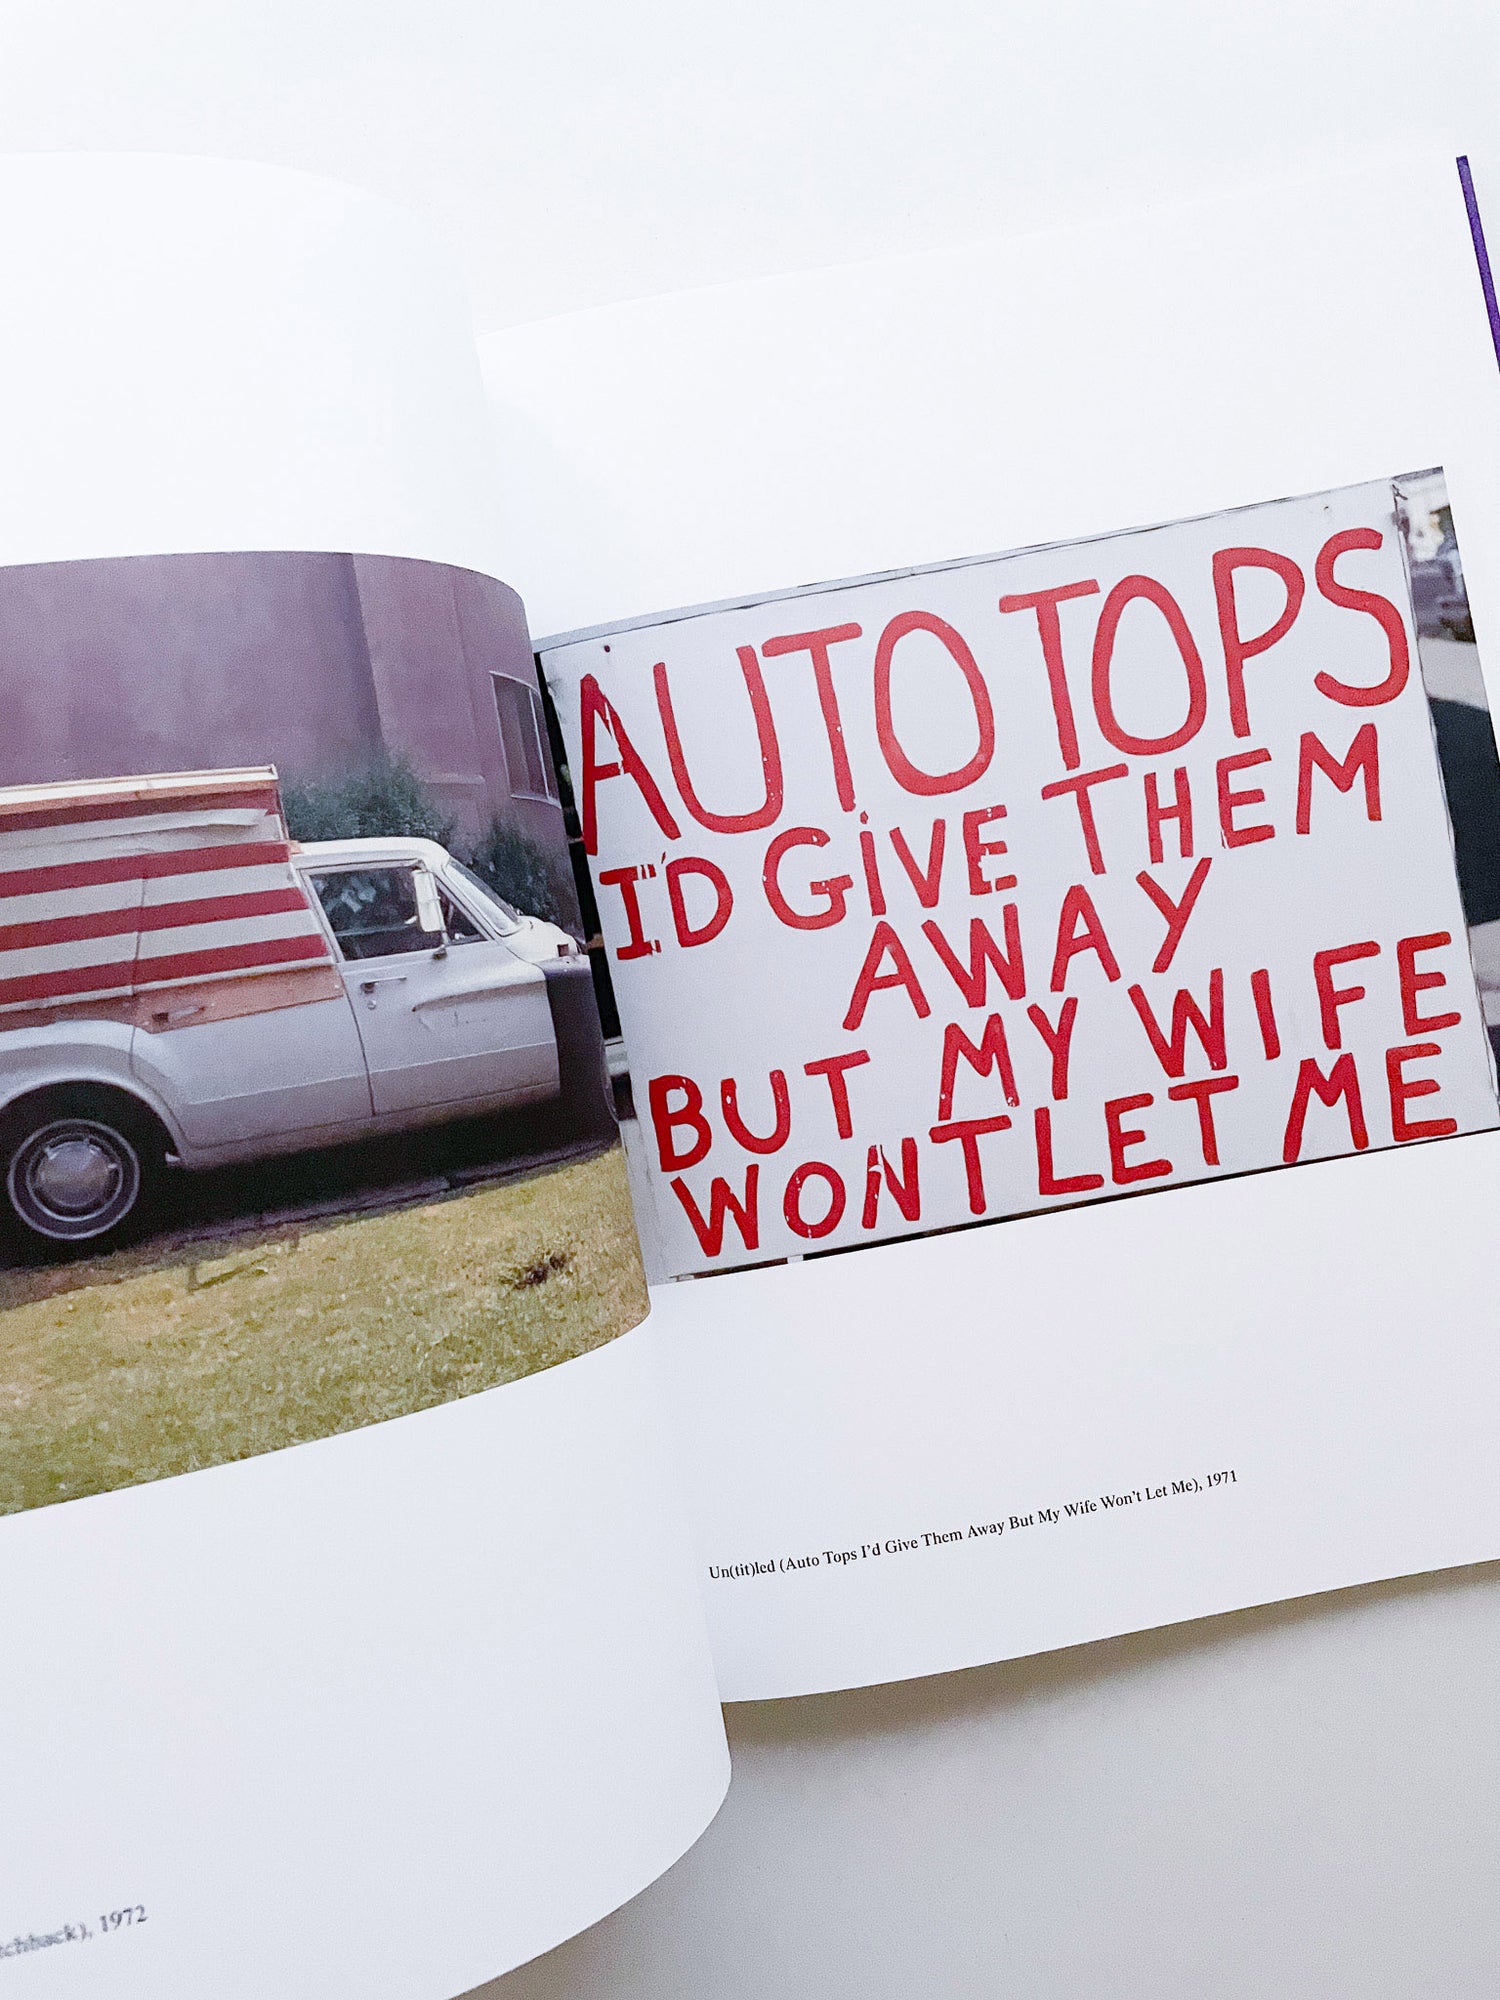 AUTO TOPS
I'D GIVE THEM
AWAY
BUT MY WIFE
WONT LET ME
Un(tit)led (Auto Tops I'd Give Them Away But My Wife Won't Let Me), 1971
1972